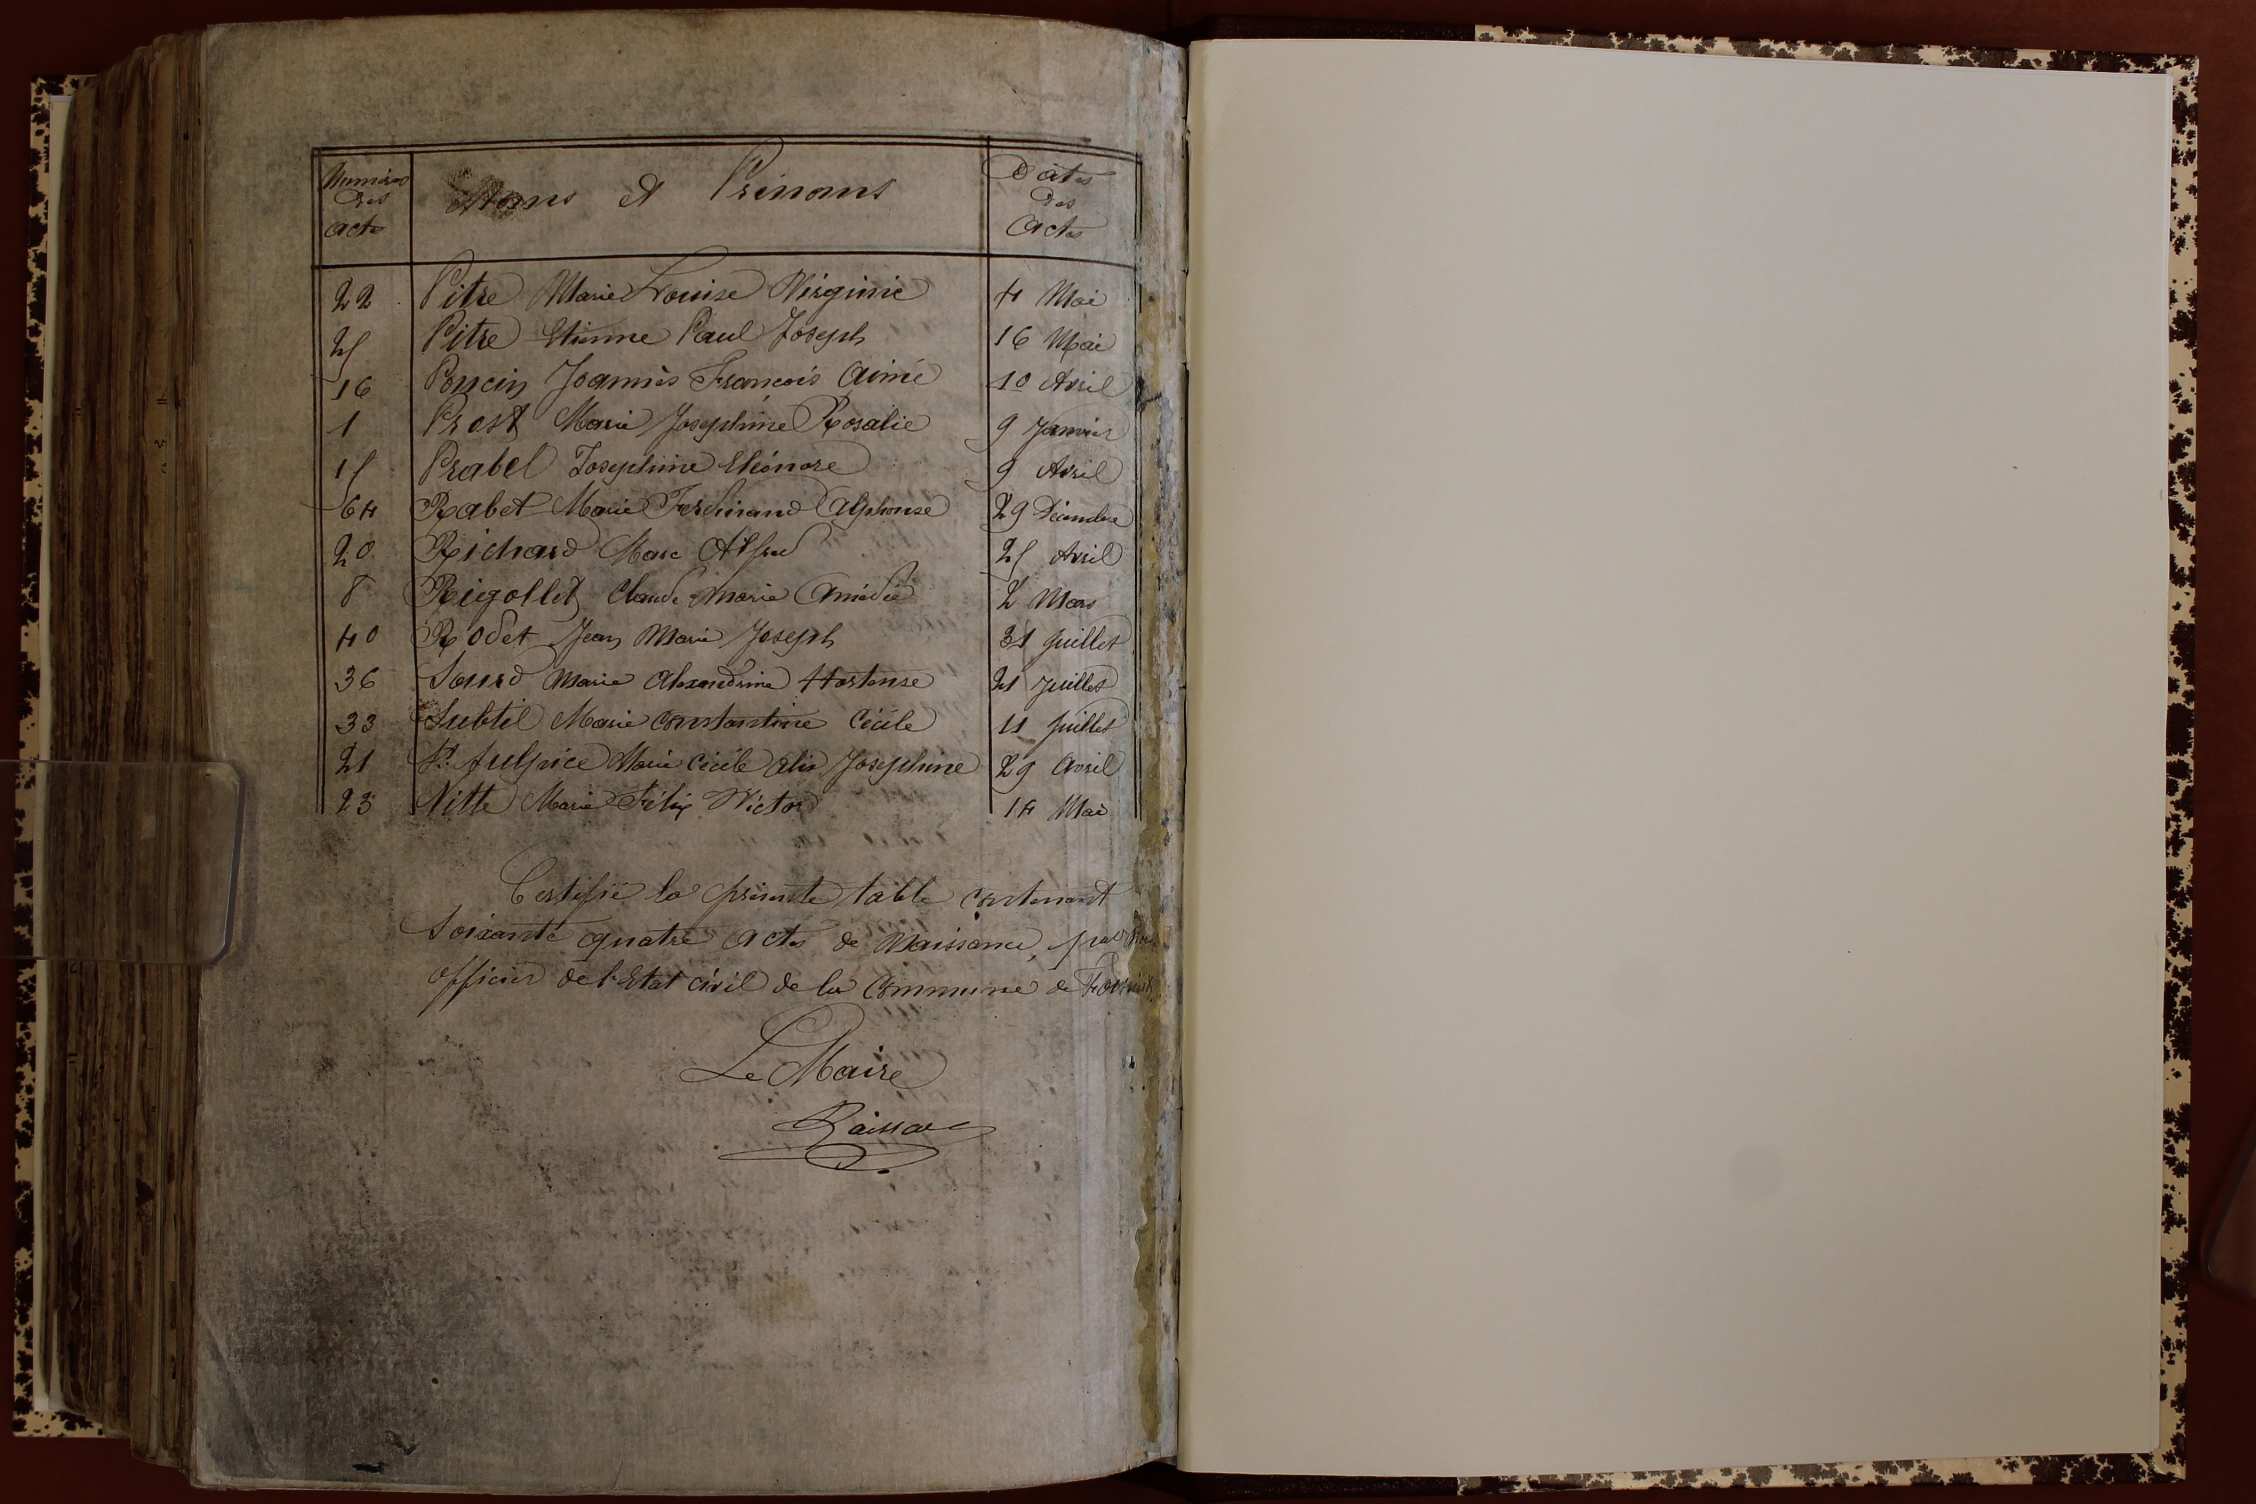 Numéros des actes | Noms et Prénoms | Dates des Actes
22 Pitre Marie Louise Virginie 4 Mai
25 Pitre Etienne Paul Joseph 16 Mai
16 Poncin Joannès François Aimé 10 Avril
1 Prost Marie Joséphine Rosalie 9 Janvier
15 Prabel Joséphine Eléonore 9 Avril
64 Rabet Marie Ferdinand Alphonse 29 Décembre
20 Richard Marc Alfred 25 Avril
8 Rigollet Claude Marie Amédée 2 Mars
40 Rodet Jean Marie Joseph 31 Juillet
36 Sourd Marie Alexandrine Hortense 21 Juillet
33 Subtil Marie Constantine Cécile 11 Juillet
21 St. Sulpice Marie Cécile Alix Joséphine 29 Avril
23 Vitte Marie Félix Victor 14 Mai
Certifié la présente table contenant
soixante quatre actes de Naissance, par Nous
Officier de l'Etat civil de la Commune de
Le Maire